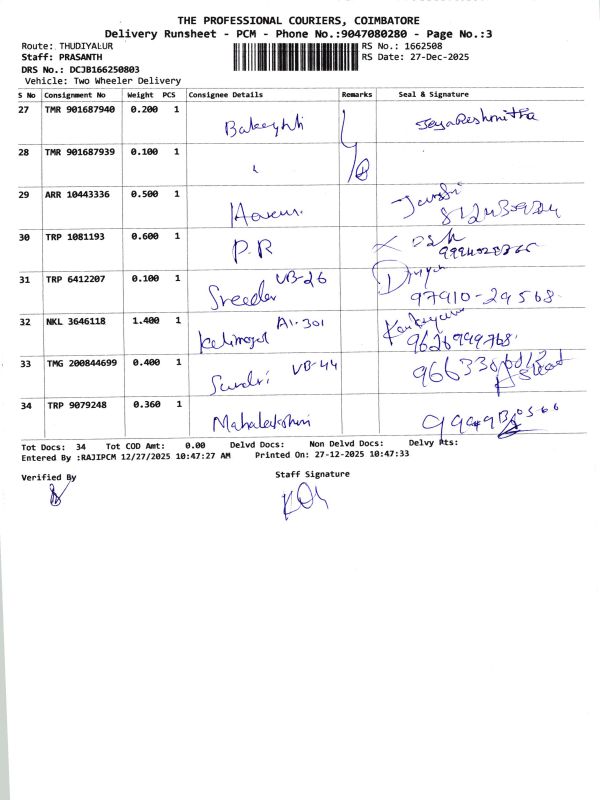 THE PROFESSIONAL COURIERS, COIMBATORE
Delivery Runsheet - PCM - Phone No.:9047080280 - Page No.:3
Route: THUDIYALUR RS No.: 1662508
Staff: PRASANTH RS Date: 27-Dec-2025
DRS No.: DCJB166250803
Vehicle: Two Wheeler Delivery
S No Consignment No Weight PCS Consignee Details Remarks Seal & Signature
27 TMR 901687940 0.200 1 JeyaReshmitha
28 TMR 901687939 0.100 1
29 ARR 10443336 0.500 1
30 TRP 1081193 0.600 1 P.R
31 TRP 6412207 0.100 1 VB-26
97910-29568
32 NKL 3646118 1.400 1 A1-301
9626999768
33 TMG 200844699 0.400 1 VB-44
34 TRP 9079248 0.360 1 Mahalakshmi
Tot Docs: 34 Tot COD Amt: 0.00 Delvd Docs: Non Delvd Docs: Delvy Pts:
Entered By :RAJIPCM 12/27/2025 10:47:27 AM Printed On: 27-12-2025 10:47:33
Verified By Staff Signature